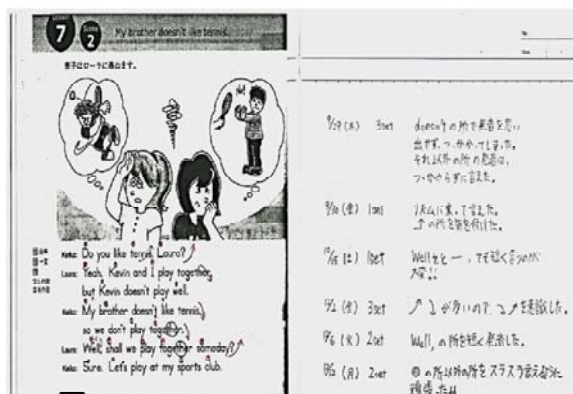 Lesson
7
Scene
2
My brother doesn't like tennis.
恵子はローラに尋ねます。
Keiko: Do you like tennis, Laura?
Laura: Yeah. Kevin and I play together,
but Kevin doesn't play well.
Keiko: My brother doesn't like tennis,
so we don't play together.
Laura: Well, shall we play together someday?
Keiko: Sure. Let's play at my sports club.
No.
Date
9/29 (木) 3set doesn'tの所で発音を思い
出せず、つっかかってしまった。
それ以外の所の発音は、
つっかからずに言えた。
9/30 (金) 1set リズムに乗って言えた。
の所を気を付けた。
(土) 1set Wellをとても短く言うのが
大変!!
3set ↗ ↘が多いので、↘ ↗を意識した。
(火) 2set Well, の所を短く発音した。
(月) 2set の所以外の所をスラスラ言えるように
頑張った